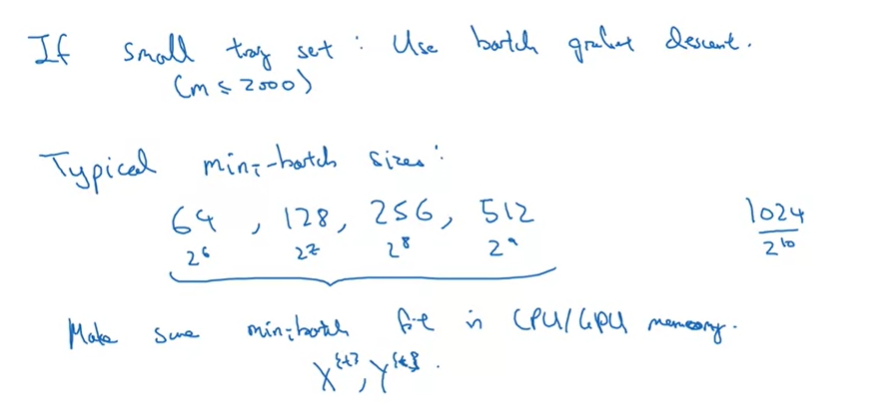 If small trag set : Use batch gradient descent.
(m ≤ 2000)
Typical mini-batch sizes:
64 , 128, 256, 512 1024
2^6 2^7 2^8 2^9 2^10
Make sure minibatch fit in CPU/GPU memory.
X^{t}, Y^{t}.